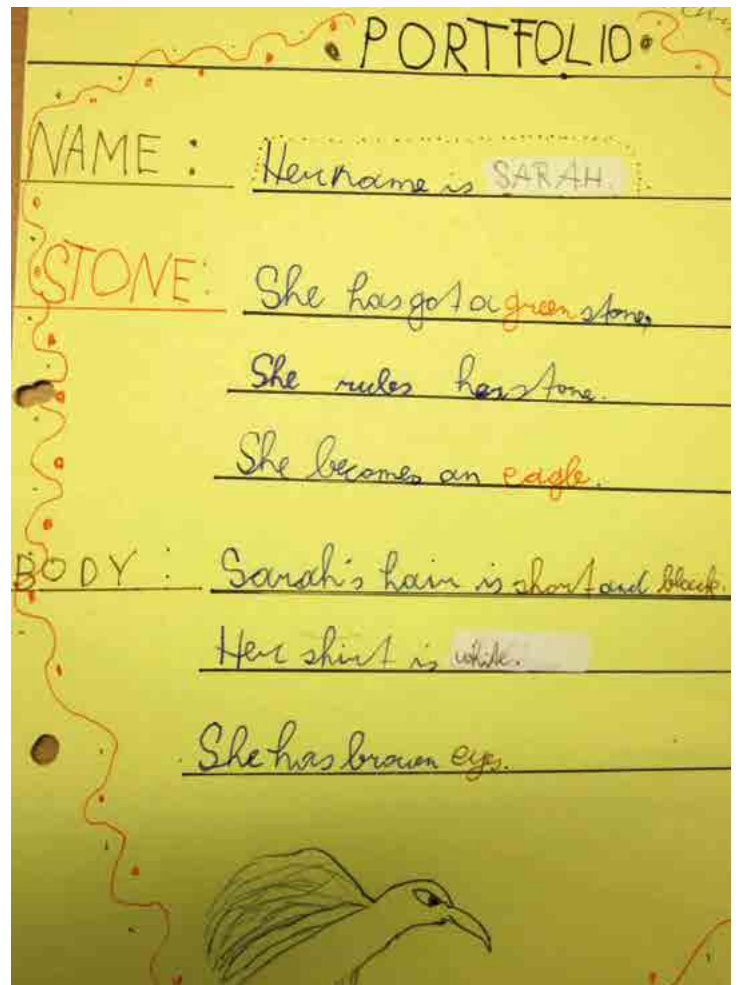 PORTFOLIO
NAME : Her name is SARAH.
STONE: She has got a green stone.
She rules her stone.
She becomes an eagle.
BODY : Sarah's hair is short and black.
Her shirt is white.
She has brown eyes.